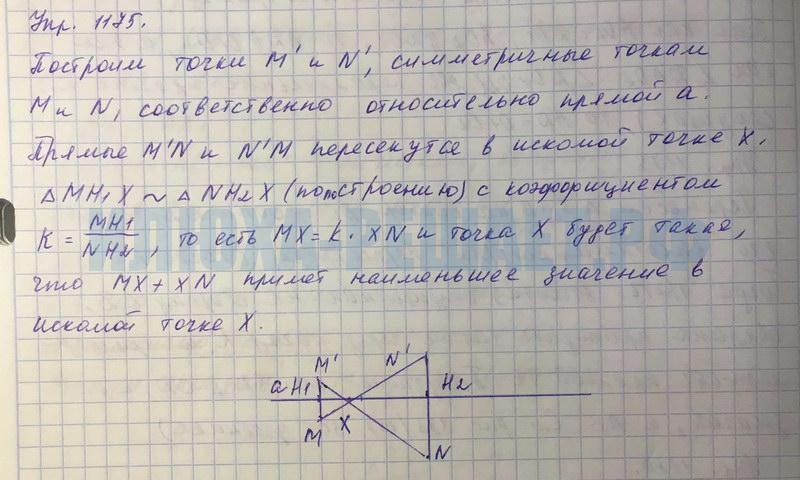 Упр. 1175.
Построим точки M' и N', симметричные точкам
M и N, соответственно относительно прямой a.
Прямые M'N и N'M пересекутся в искомой точке X.
△MH1X ~ △NH2X (по построению) с коэффициентом
K = MH1/NH2, то есть MX = K · XN и точка X будет такая,
что MX + XN примет наименьшее значение в
искомой точке X.
M' N'
a H1 H2
M X N